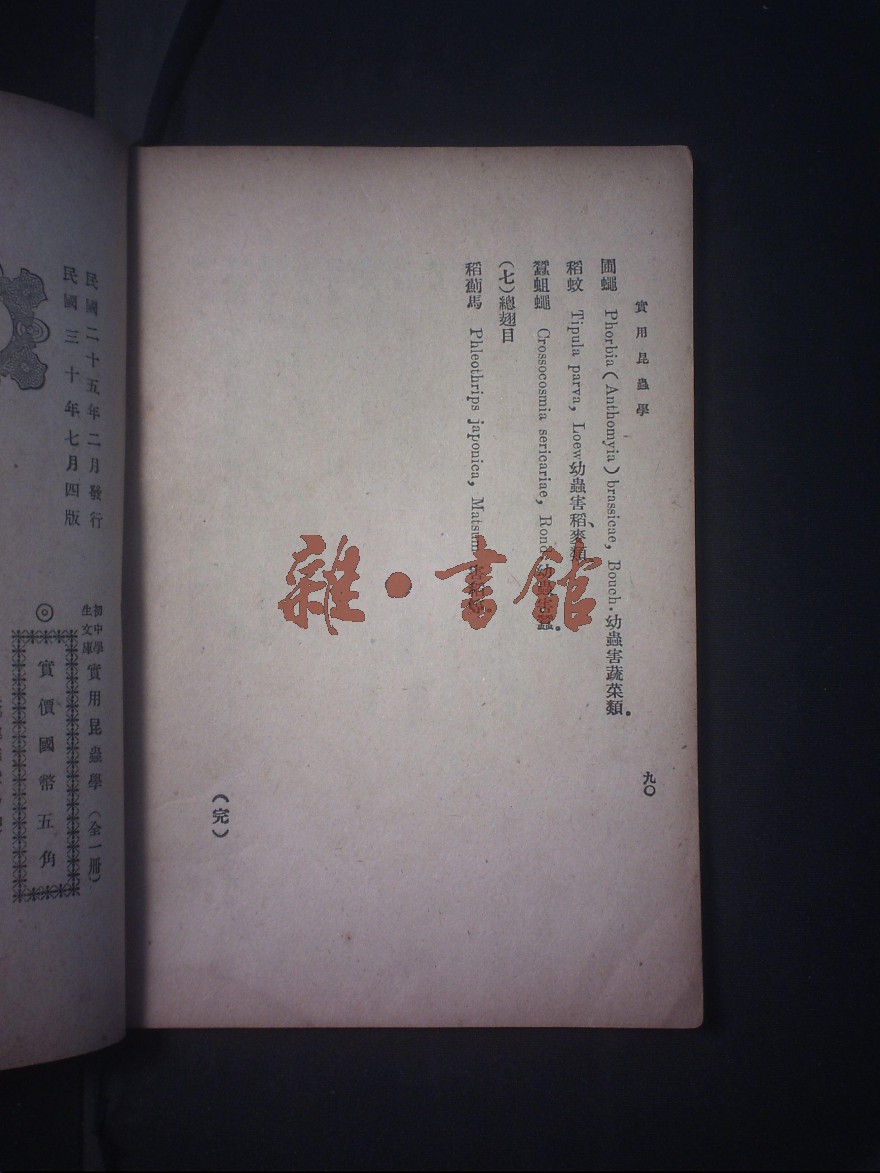 實用昆蟲學
九〇
圃蠅 Phorbia (Anthomyia) brassicae, Bouch. 幼蟲害蔬菜類。
稻蚊 Tipula parva, Loew 幼蟲害稻、麥類
蠶蛆蠅 Crossocosmia sericariae, Rond. 幼蟲害蠶。
(七)總翅目
稻薊馬 Phleothrips japonica, Matsum
(完)
雜·書館
民國二十五年二月發行
民國三十年七月四版
初中學生文庫 實用昆蟲學 (全一冊)
◎ 實價國幣五角